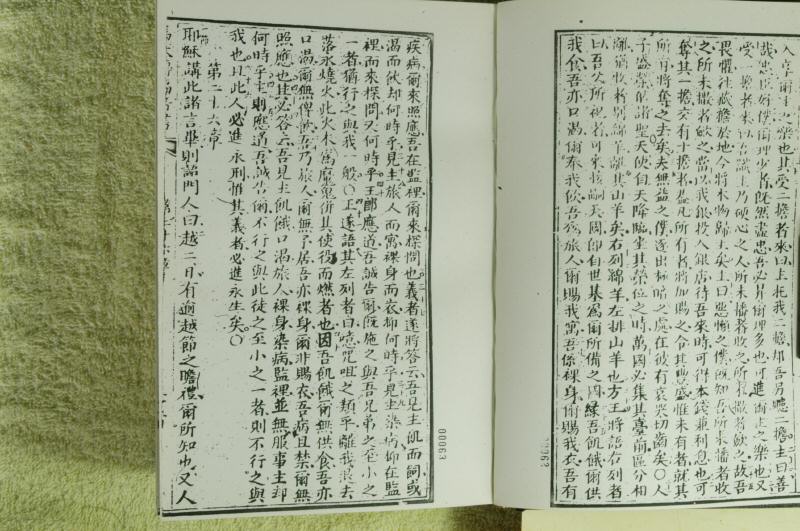 入享爾主之樂也其受二擔者來曰主托我二擔却吾另聽二擔主曰善
哉忠臣好僕爾理少者既然盡忠吾必于爾理多也可進爾主之樂也又
受一擔者來曰吾識主乃硬心之人所未播者收之所未撒者歛之故吾
畏懼往藏擔於地今將本物歸主矣主曰惡懶之僕既知吾所未播者收
之所未撒者歛之當以我銀投入銀店待吾來時可得本錢兼利息也可
奪其一擔交有十擔者蓋凡所有者將加賜之令其豐盛惟未有者就其
所有將奪之去矣夫無益之僕逐出極暗之處在彼有哀哭切齒矣〇人
子盛榮諸聖天使自天降臨坐其榮位之時萬國必集其臺前區分相
離猶牧者別綿羊離其山羊矣右列綿羊左排山羊也方王將語右列者
曰吾父所祝者可來接嗣天國即自世基為爾所備之國緣吾飢餓爾供
我食吾亦口渴爾奉我飲吾為旅人爾賜我寓吾係裸身爾賜我衣吾有
疾病爾來照應吾在監裡爾來探問也義者遂將答云吾見主飢而飼或
渴而飲却何時乎見主旅人而寓裸身而衣抑何時乎見主染病抑在監
裡而來探問又何時乎王即應道吾誠告爾既施之與吾兄弟之至小之
一者猶行之與我一般〇王遂語其左列者曰噫咒咀之類乎離我投去
落永燒火此火本為魔鬼併其使役而燃者也因吾飢餓爾無供食吾亦
口渴爾無俾飲吾乃旅人爾無予居吾亦裸身爾非賜衣吾病且禁爾無
照應也其必答云吾見主飢餓口渴旅人裸身染病監裡並無服事主却
何時乎主則應道吾誠告爾不行之與此徒之至小之一者則不行之與
我也且此人必進永刑惟其義者必進永生矣〇
第二十六章
耶穌講此諸言畢則諭門人曰越二日有逾越節之瞻禮爾所知也又人
00063
00062